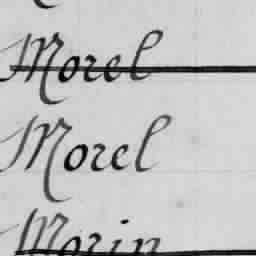 Morel
Morel
Morin